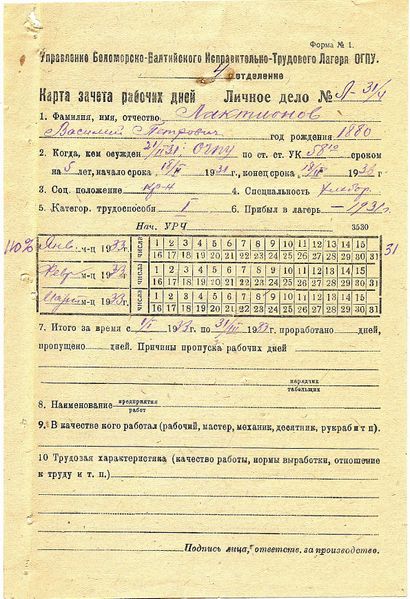 Форма № 1.
Управление Беломорско-Балтийского Исправительно-Трудового Лагеря ОГПУ.
4 отделение
Карта зачета рабочих дней Личное дело № Л-31/4
1. Фамилия, имя, отчество Лактионов
Василий Петрович год рождения 1880
2. Когда, кем осужден 21/II 31 по ст. ст. УК 58/10 сроком
на 5 лет, начало срока 1931 г., конец срока 1936 г.
3. Соц. положение кр-н 4. Специальность хлебор.
5. Категор. трудоспособн I 6. Прибыл в лагерь — 1931 г.
Нач. УРЧ 3530
Янв м-ц 1933 г. числа 1 2 3 4 5 6 7 8 9 10 11 12 13 14 15
110% 16 17 18 19 20 21 22 23 24 25 26 27 28 29 30 31 31
Февр м-ц 1933 г. числа 1 2 3 4 5 6 7 8 9 10 11 12 13 14 15
16 17 18 19 20 21 22 23 24 25 26 27 28 29 30 31
Март м-ц 1933 г. числа 1 2 3 4 5 6 7 8 9 10 11 12 13 14 15
16 17 18 19 20 21 22 23 24 25 26 27 28 29 30 31
7. Итого за время с 1/I 1933 г. по 31/III 1933 г. проработано дней,
пропущено дней. Причины пропуска рабочих дней
нарядчик
табельщик
8. Наименование предприятия
работ
9. В качестве кого работал (рабочий, мастер, механик, десятник, рукраб и т п).
10 Трудовая характеристика (качество работы, нормы выработки, отношение
к труду и т. п.)
Подпись лица, ответств. за производство.